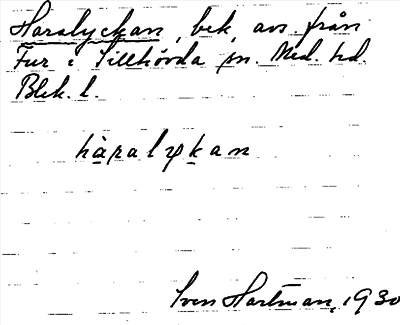 Haralyckan, bek. avs från
Fur i Tillhövda sn. Med. hd.
Blek. l.
haralykan
Sven Hartman, 1930